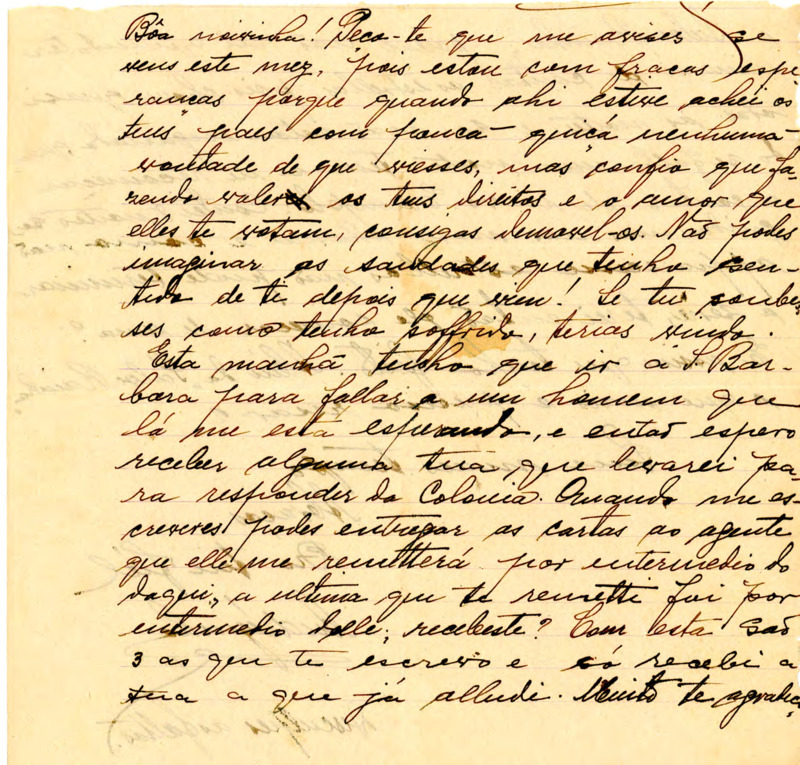 Bôa noivinha! Peço-te que me avises se
vens este mez, pois estou com fracas espe-
ranças porque quando ahi estive achei os
teus paes com pouca - quiçá nenhuma -
vontade de que viesses, mas confio que fa-
zendo valer os teus direitos e o amor que
elles te votam, consigas demovel-os. Não podes
imaginar as saudades que tenho sen-
tido de ti depois que vim! Se tu soubes
ses como tenho soffrido, terias vindo.
Esta manhã tenho que ir a S. Bar-
bara para fallar a um homem que
lá me está esperando, e então espero
receber alguma tua, que levarei pa-
ra responder da Colonia. Quando me es-
creveres podes entregar as cartas ao agente
que elle me remetterá por intermedio do
daqui, a ultima que te remetti foi por
intermedio delle; recebeste? Com esta são
3 as que te escrevo e só recebi a
tua a que já alludi. Muito te agradeç